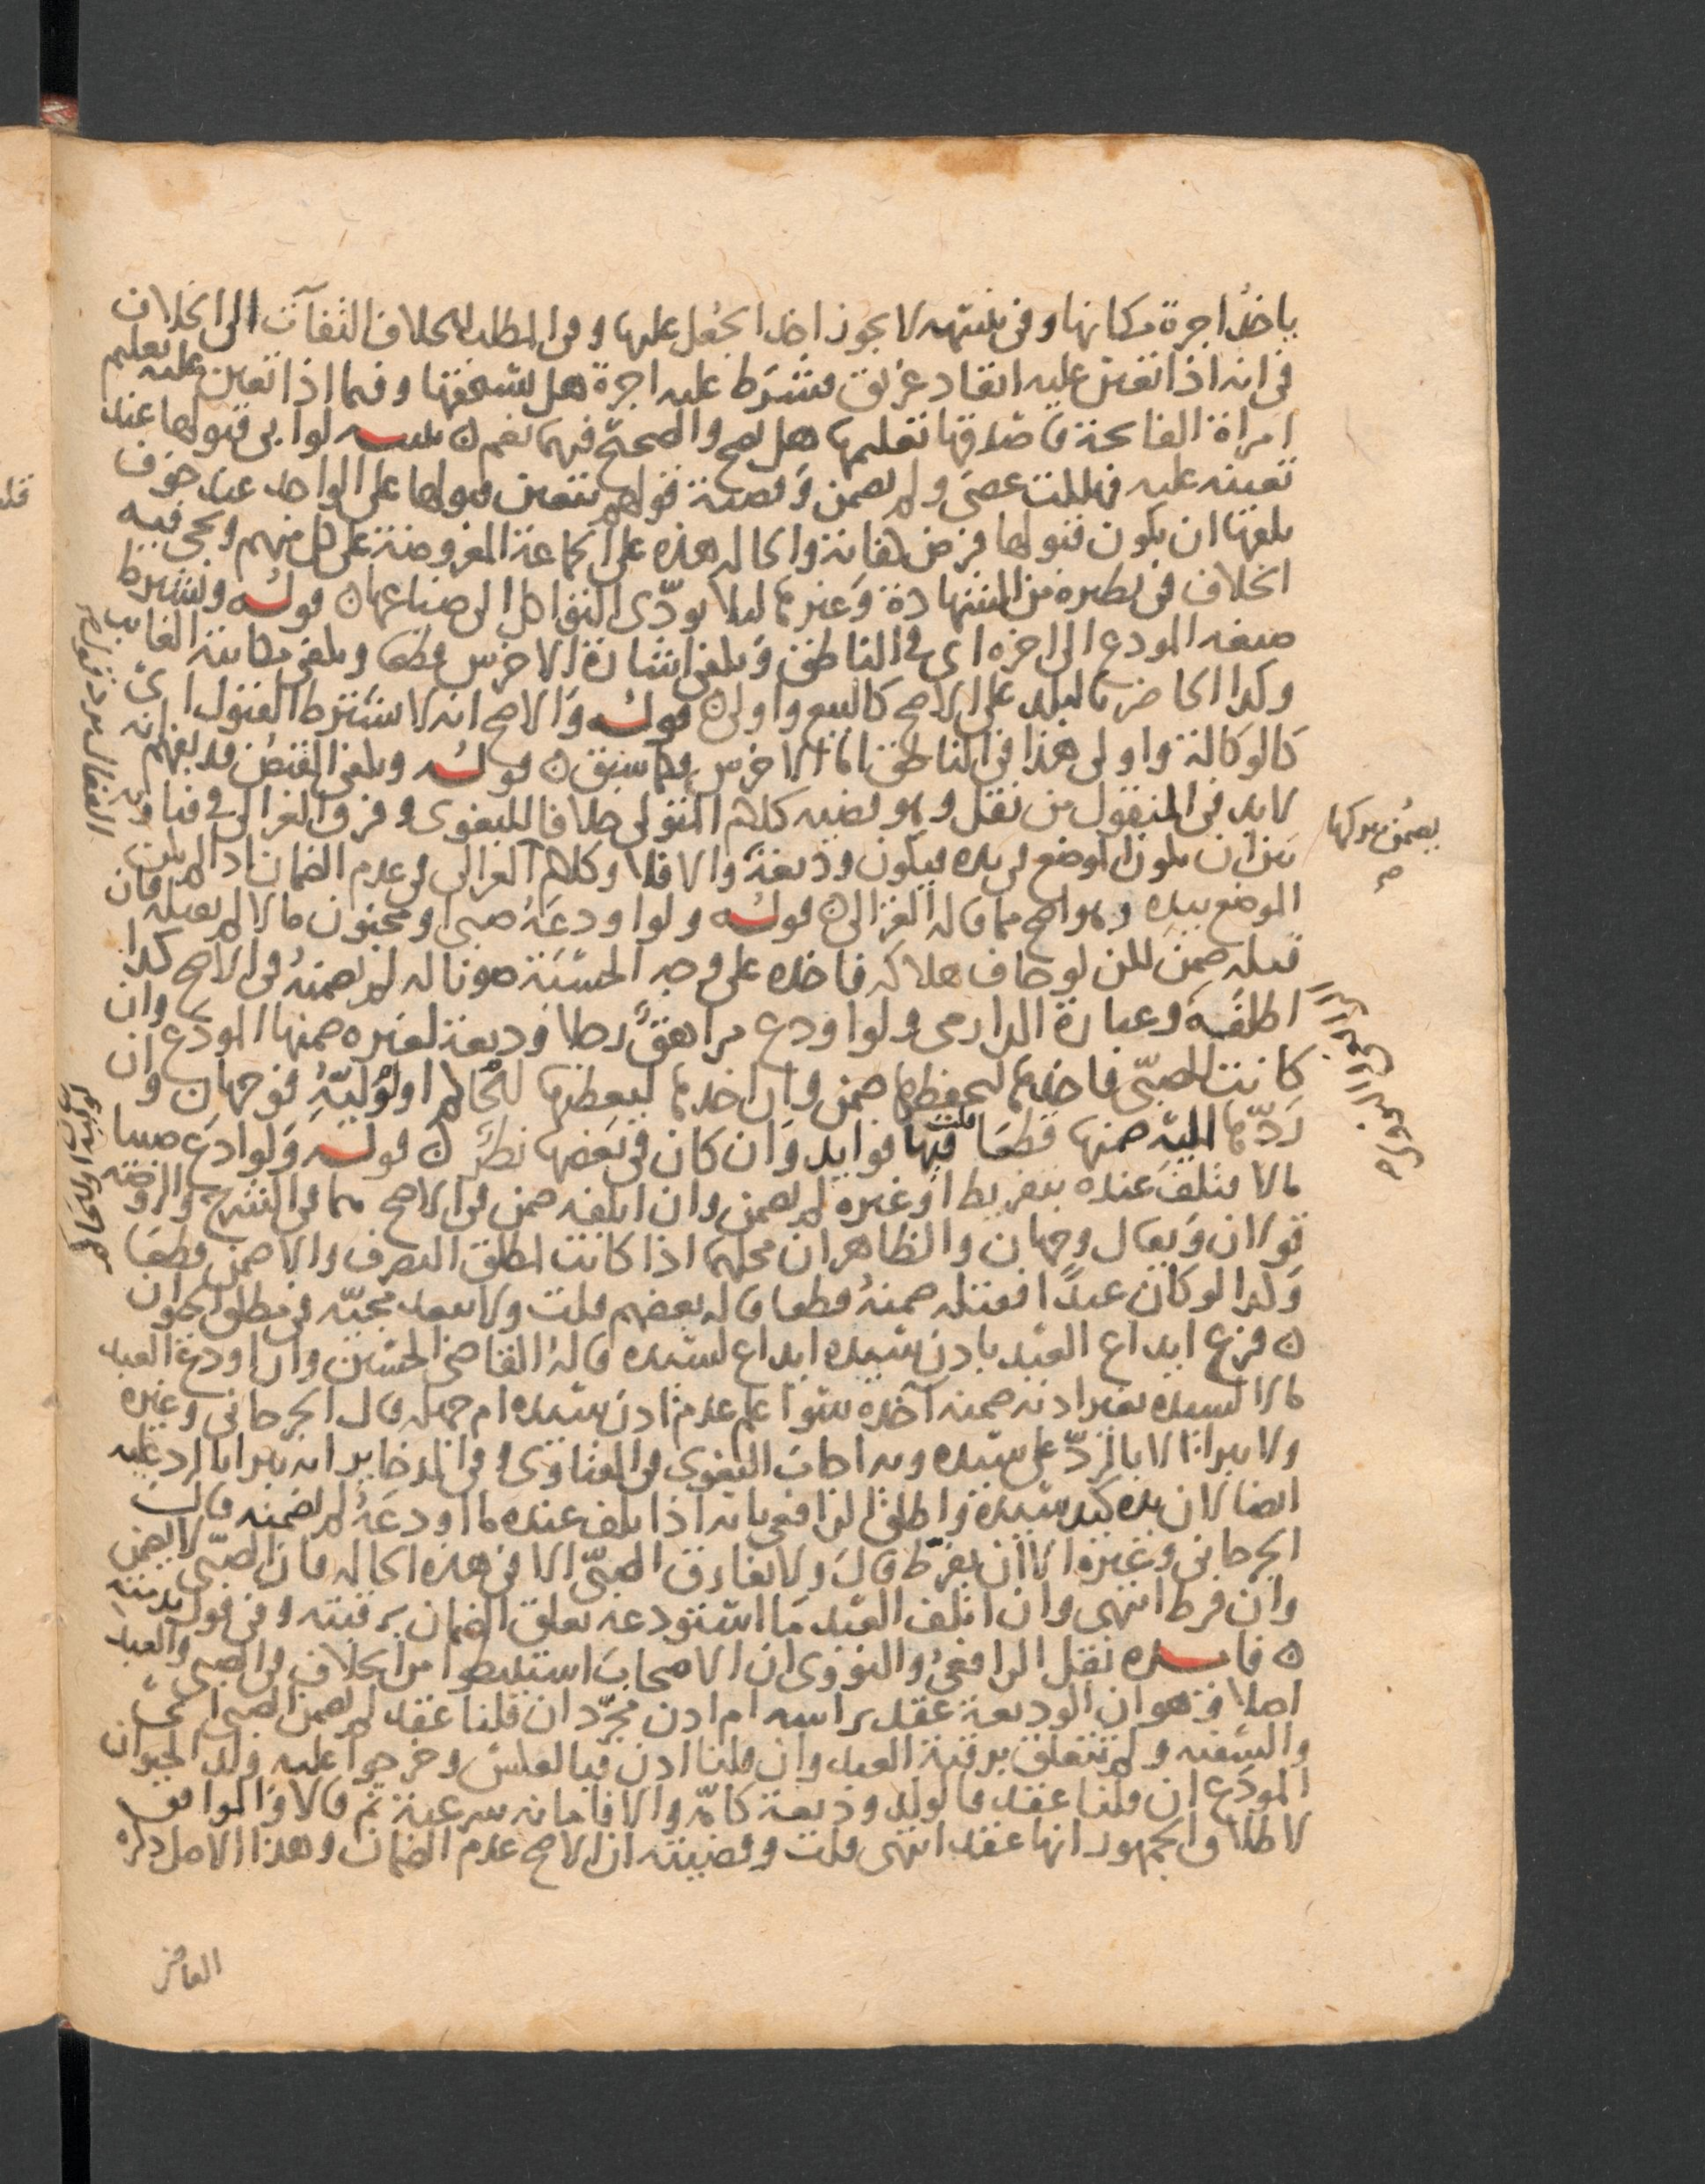 ياخذ اجرة مكانها وفي تتمته لا يجوز اخذ الجعل عليها وفي المطلب الخلاف التفات الى الخلاف
في انه اذا تعين عليه انقاد غريق فشرط عليه اجرة هل يستحقها وفيما اذا تعين عليه تعليم
امراة الفاتحة فاصدقها تعليمها هل يصح والصحيح فيهما نعم ن تنبيه لو ابى قبولها عند
تعينه عليه فهلكت عصى ولم يضمن وقضية قولهم تتعين قبولها على الواحد عند خوف
تلفها ان يكون قبولها فرض كفاية والحالة هذه على الجماعة المفروضة على كل منهم ويجي فيه
الخلاف في نظيره من الشهادة وغيرها ليلا يودى التواكل الى ضياعها ن قوله ويشترط
صيغة المودع الى اخره اي في الناطق وتكفي اشارة الاخرس قطعا وتكفي مكاتبة الغايب
وكذا الحاضر بالبلد على الاصح كالبيع واولى ن قوله والاصح انه لا يشترط القبول اي
كالوكالة واولى هذا في الناطق اما الاخرس فكما سبق ن قوله ويكفي القبض قد يفهم انه
لابد في المنقول من نقل وهو قضية كلام المتولي خلافا للبغوي وفرق الغزالي في فتاويه
بين ان يكون الموضع في يده فيكون وديعة والا فلا وكلام الغزالي في عدم الضمان اذا لم يكن
الموضع بيده وهو اصح مما قاله الغزالي ن قوله ولو اودعه صبي او مجنون مالا لم يقبله فان
قبله ضمن لكن لو خاف هلاكه فاخذه على وجه الحسبة صونا له لم يضمنه في الاصح كذا
اطلقه وعبارة الدارمي ولو اودع مراهق رجلا وديعة لغيره ضمنها المودع وان
كانت للصبي فاخذها ليحفظها ضمن وان اخذها ليعطيها للحاكم او لوليه فوجهان وان
ردها اليه ضمنها قطعا قلت فيها فوايد وان كان في بعضها نظر ن قوله ولو اودع صبيا
مالا فتلف عنده بتفريط او غيره لم يضمن وان اتلفه ضمن في الاصح هما في الشرح والروضة
قولان ويقال وجهان والظاهر ان محلهما اذا كانت لمطلق التصرف والا ضمن قطعا
وكذا لو كان عبدا فقتله ضمنه قطعا قاله بعضهم قلت ولا يبعد مجيئه في مطلق الحيوان
ن فرع ايداع العبد باذن سيده ايداع لسيده قاله القاضي الحسين وان اودع العبد
مالا لسيده بغير اذنه ضمنه آخذه سوا علم عدم اذن سيده ام جهله قال الجرجاني وغيره
ولا يبرا الا بالرد على سيده وبه اجاب البغوي في الفتاوى وفي الذخاير انه يبرا بالرد عليه
ايضا لان يده كيد سيده واطلق الرافعي بانه اذا تلف عنده ما اودعه لم يضمنه قالت
الجرجاني وغيره الا ان يفرط قال ولا يفارق الصبي الا في هذه الحالة فان الصبي لا يضمن
وان فرط انتهى وان اتلف العبد ما استودعه تعلق الضمان برقبته وفي قول بذمته
ن فايده نقل الرافعي والنووي ان الاصحاب استنبطوا من الخلاف في الصبي والعبد
اصلا وهو ان الوديعة عقد براسه ام اذن مجرد ان قلنا عقد لم يضمن الصبي
والسفيه ولم تتعلق برقبة العبد وان قلنا اذن فبالعكس وخرجوا عليه ولد الحيوان
المودع ان قلنا عقد فالولد وديعة كامه والا فامانة شرعية ثم قالا والموافق
لاطلاق الجمهور انها عقد انتهى قلت وقضيته ان الاصح عدم الضمان وهذا الاصل ذكره
القاضي